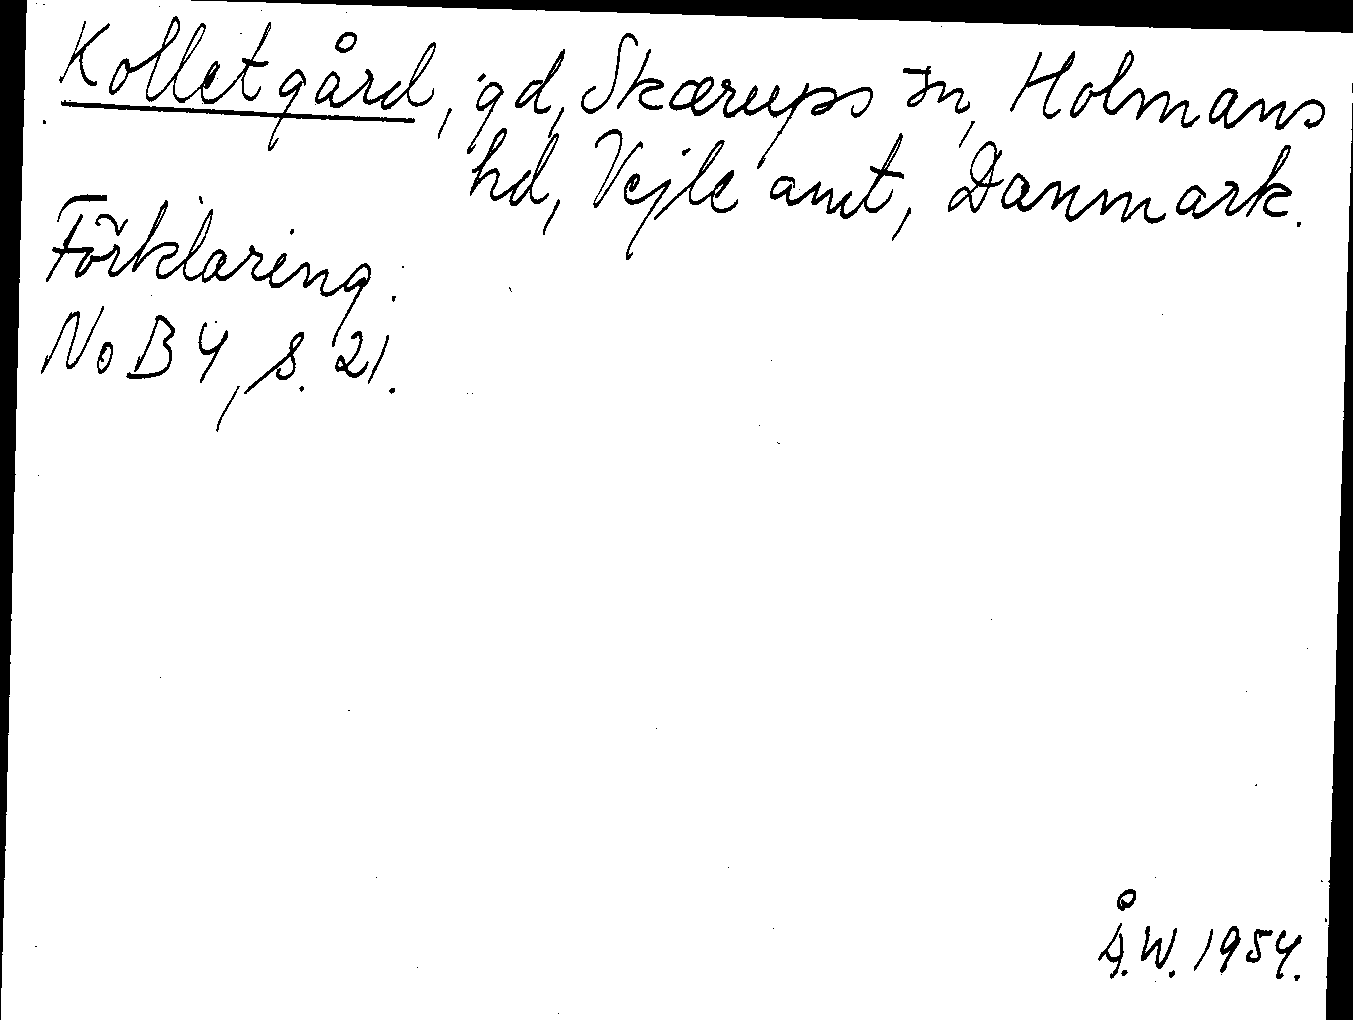 Kolletgård, gd, Skærups sn, Holmans
hd, Vejle amt, Danmark.
Förklaring.
NoB 4, s. 21.
Å.W. 1954.